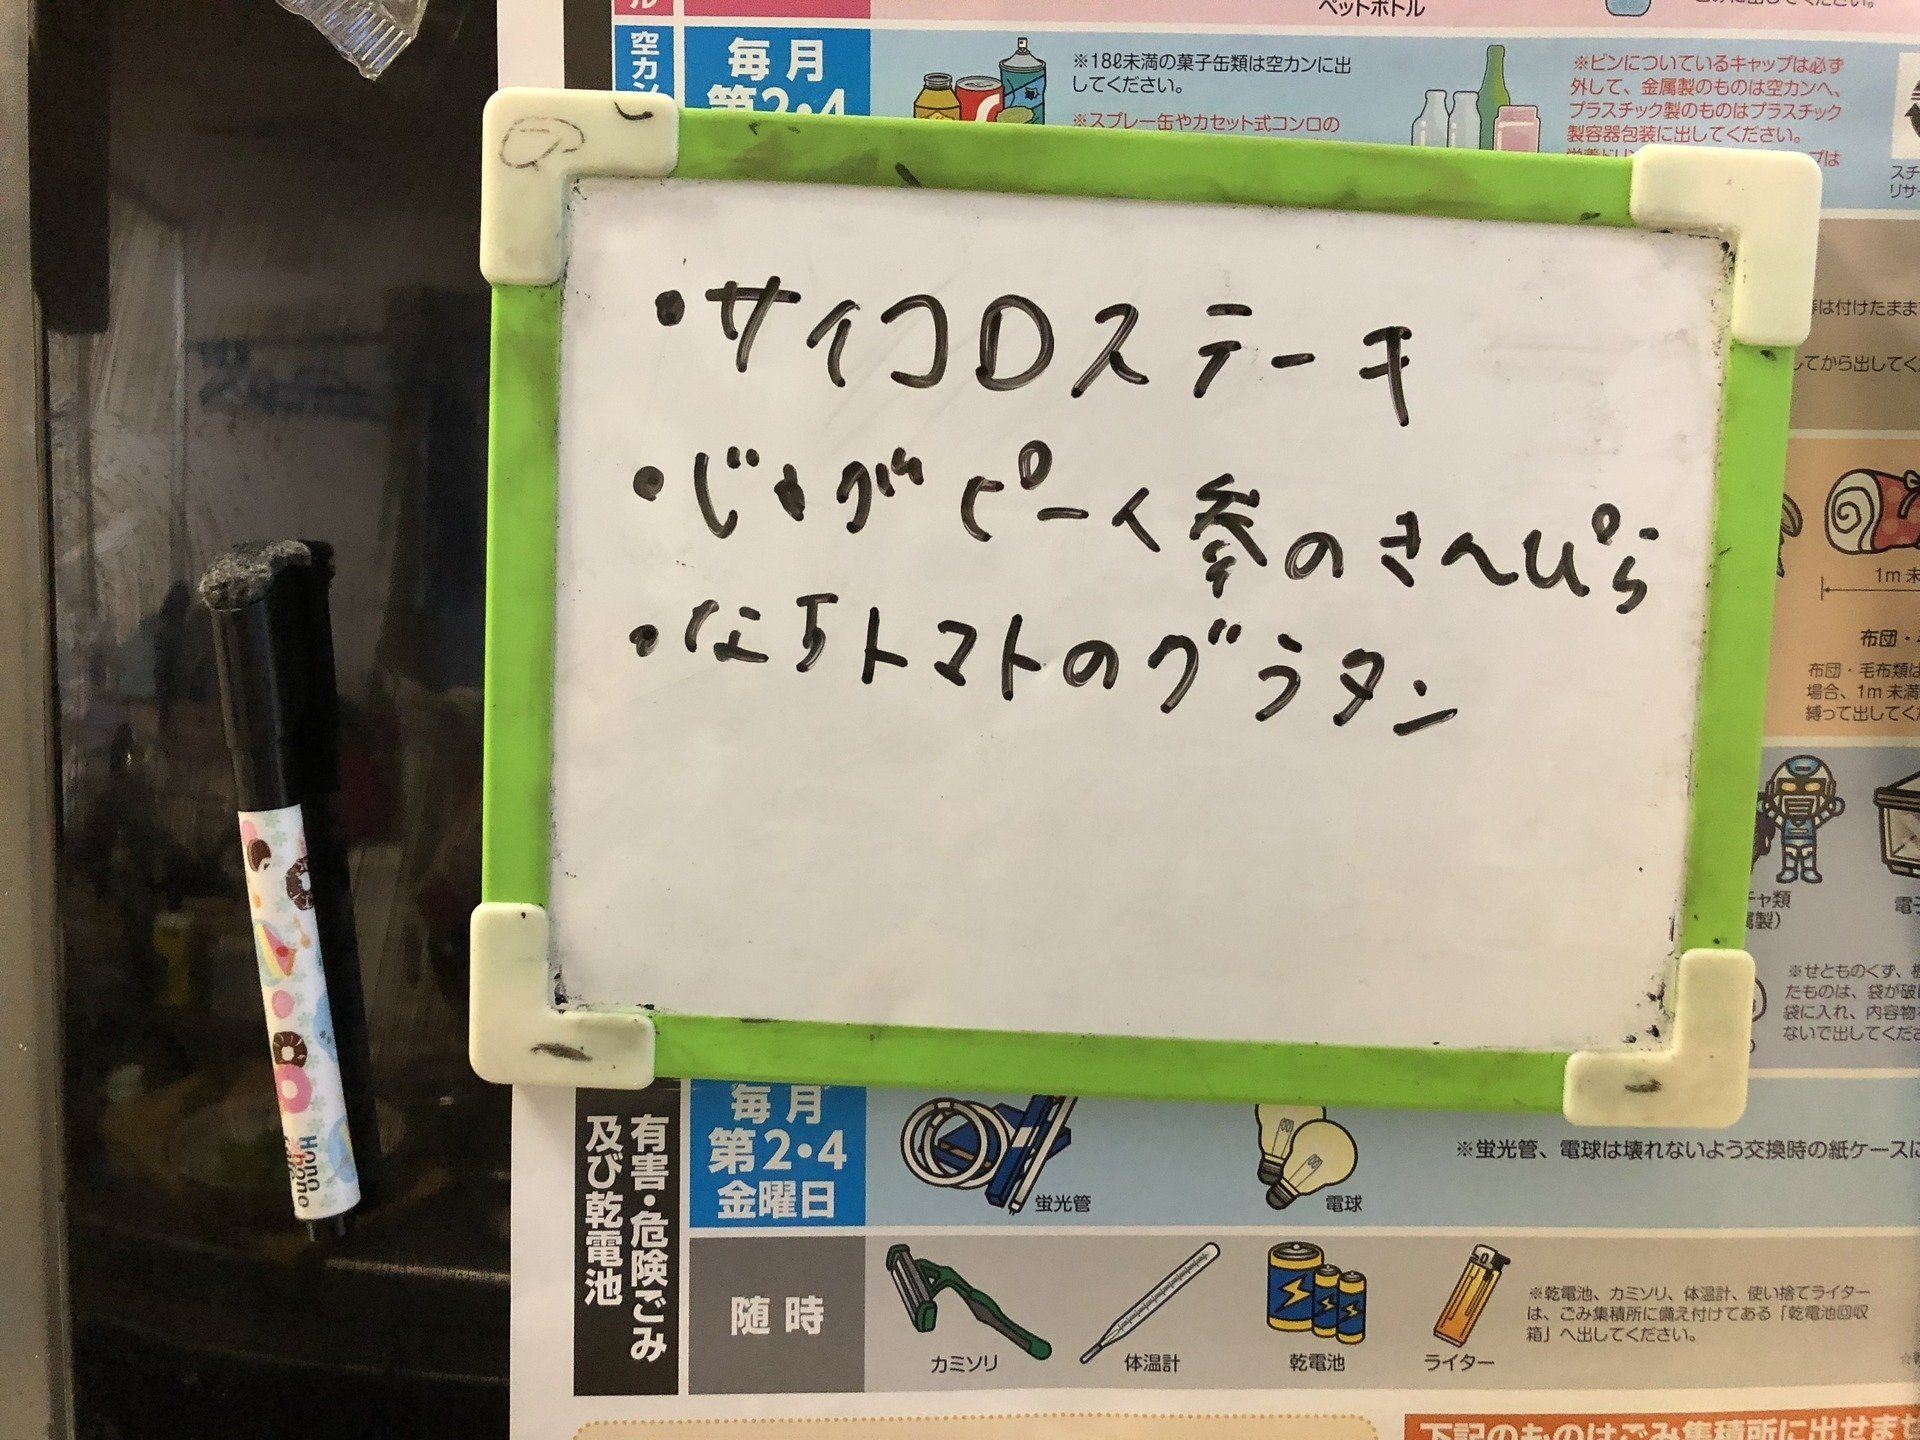 ル
ペットボトル
空カン
毎月
第2・4
※18ℓ未満の菓子缶類は空カンに出
してください。
※スプレー缶やカセット式コンロの
※ビンについているキャップは必ず
外して、金属製のものは空カンへ、
プラスチック製のものはプラスチック
製容器包装に出してください。
・サイコロステーキ
・じゃがピー人参のきんぴら
・なすトマトのグラタン
は付けたまま
してから出してく
1m未
布団・
布団・毛布類は
場合、1m未満
縛って出してくだ
チャ類
属製)
※せとものくず、
たものは、袋が破
袋に入れ、内容物
ないで出してくださ
有害・危険ごみ
及び乾電池
毎月
第2・4
金曜日
蛍光管
電球
※蛍光管、電球は壊れないよう交換時の紙ケースに
随時
カミソリ
体温計
乾電池
ライター
※乾電池、カミソリ、体温計、使い捨てライター
は、ごみ集積所に備え付けてある「乾電池回収
箱」へ出してください。
下記のものはごみ集積所に出せませ